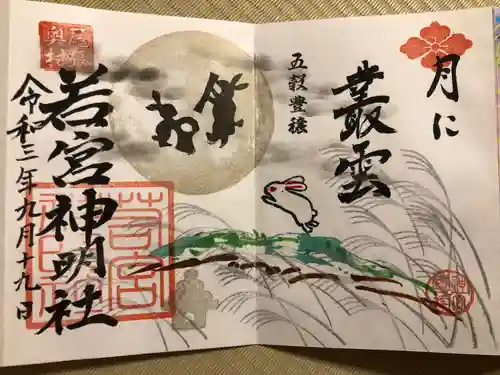 月に
叢雲
五穀豊穣
若宮神明社
令和三年九月十九日